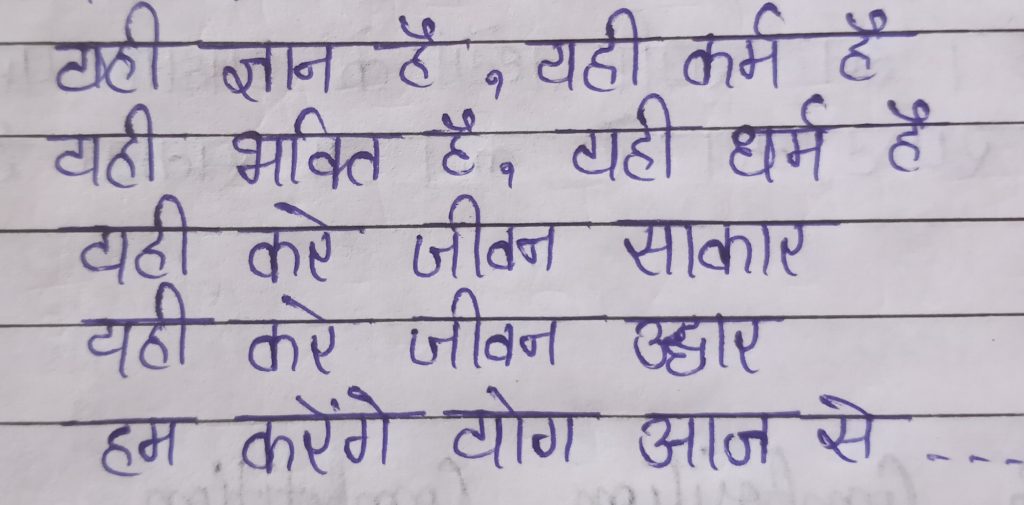 यही ज्ञान है, यही कर्म है
यही भक्ति है, यही धर्म है
यही करे जीवन साकार
यही करे जीवन उद्धार
हम करेंगे योग आज से ----